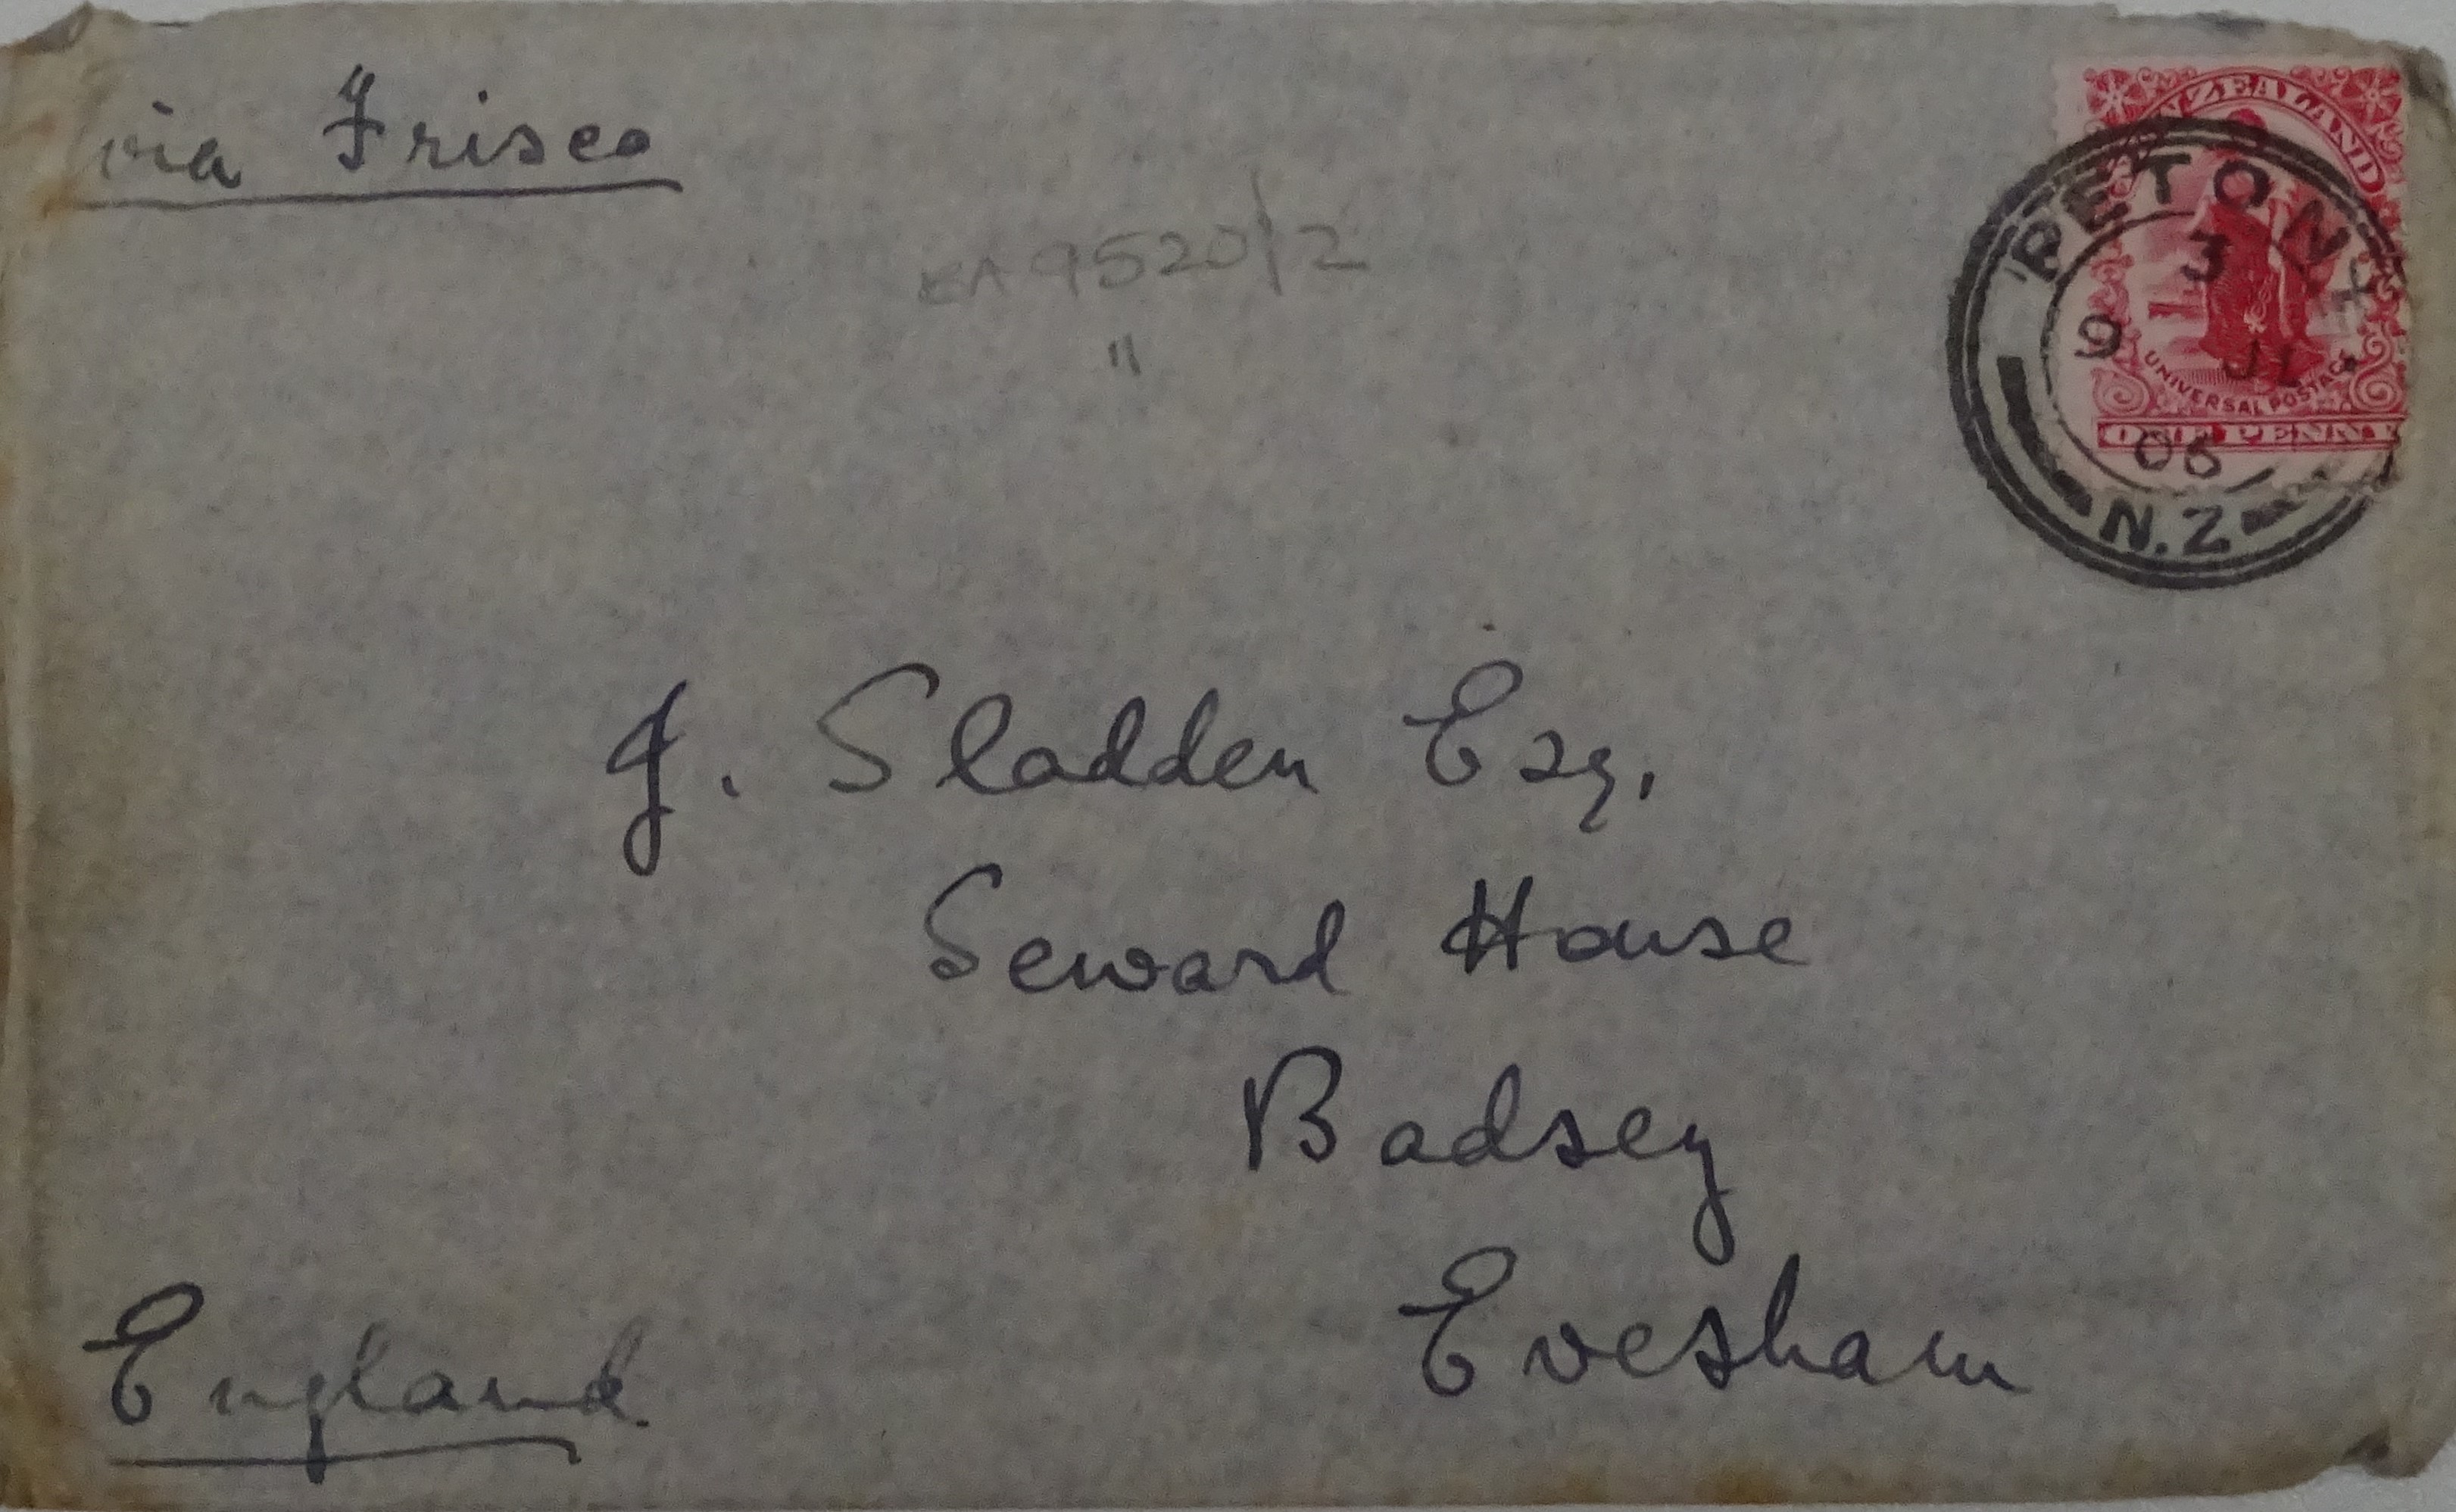 via Frisco
EA 9520/2
"
N ZEALAND
UNIVERSAL POSTAGE
ONE PENNY
PETONE
3
9 JL
05
N.Z
J. Sladden Esq.
Seward House
Badsey
Evesham
England.